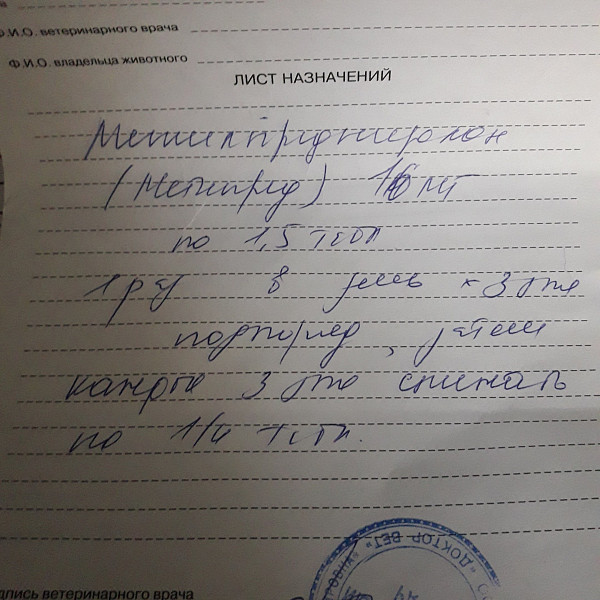 Ф.И.О. ветеринарного врача
Ф.И.О. владельца животного
ЛИСТ НАЗНАЧЕНИЙ
Метилпреднизолон
(Метипред) 16 мг
по 1,5 табл
1 раз в день х 3 дня
подряд, затем
каждые 3 дня снижать
по 1/4 табл.
"ДОКТОР ВЕТ"
дпись ветеринарного врача